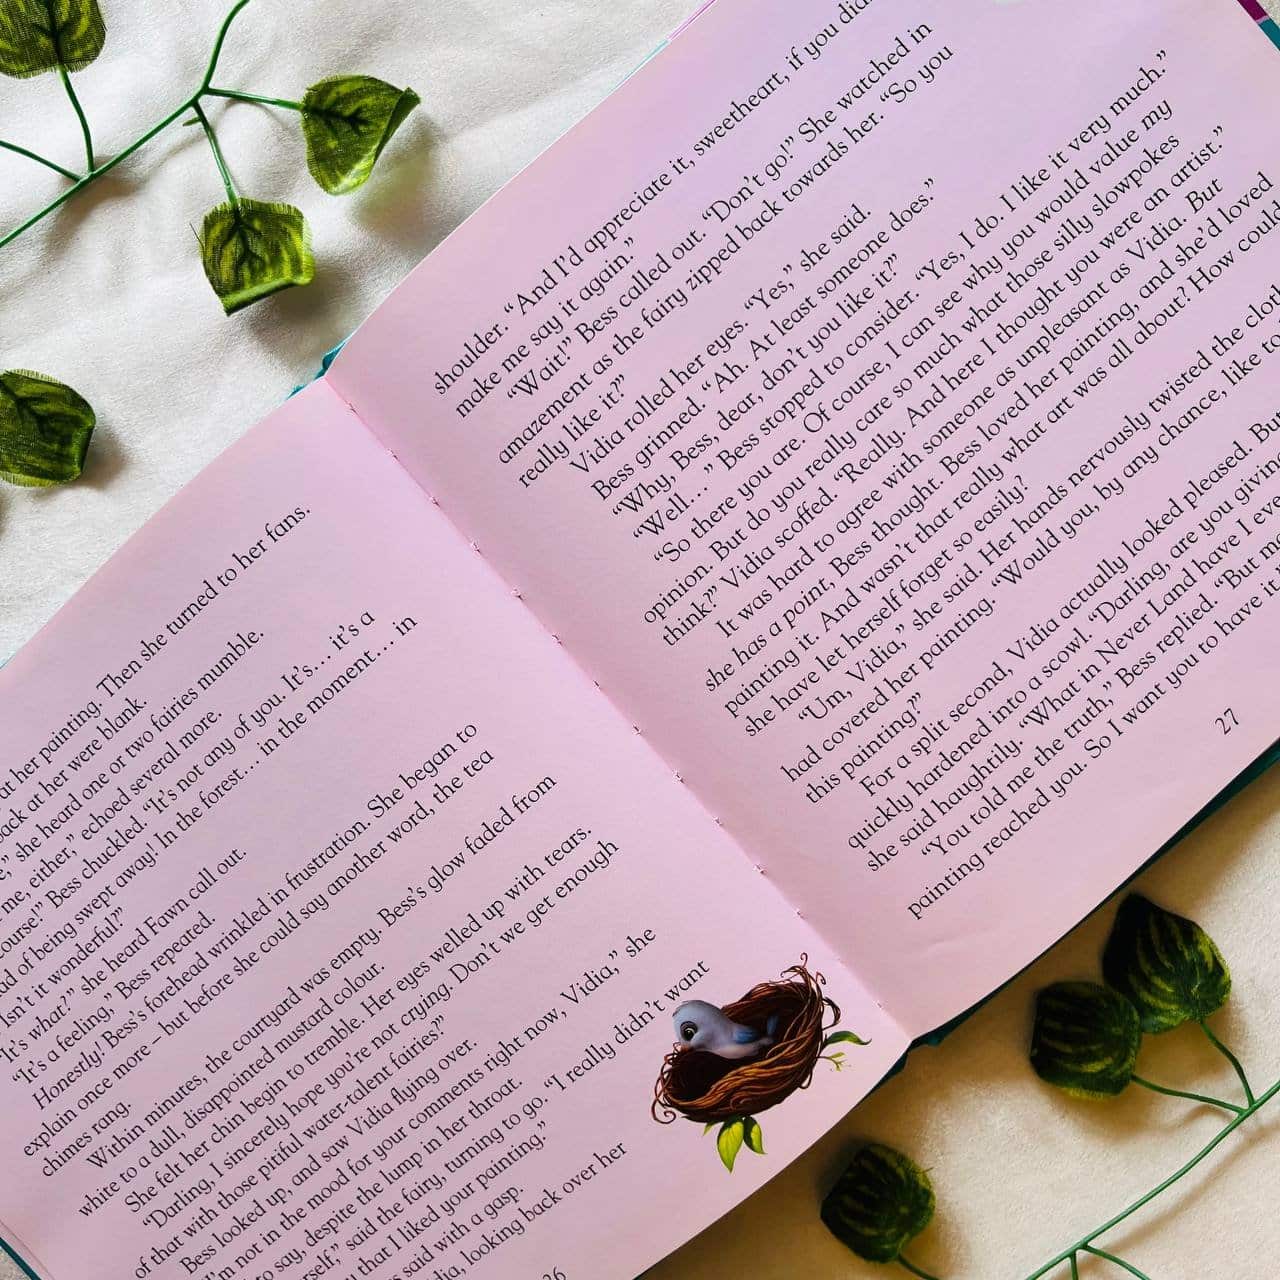 at her painting. Then she turned to her fans.
back at her were blank.
she heard one or two fairies mumble.
me, either,” echoed several more.
Bess chuckled. “It’s not any of you. It’s… it’s a
of being swept away! In the forest… in the moment… in
Isn’t it wonderful?”
“It’s what?” she heard Fawn call out.
“It’s a feeling,” Bess repeated.
Honestly! Bess’s forehead wrinkled in frustration. She began to
explain once more – but before she could say another word, the tea
chimes rang.
Within minutes, the courtyard was empty. Bess’s glow faded from
white to a dull, disappointed mustard colour.
She felt her chin begin to tremble. Her eyes welled up with tears.
“Darling, I sincerely hope you’re not crying. Don’t we get enough
of that with those pitiful water-talent fairies?”
Bess looked up, and saw Vidia flying over.
“I’m not in the mood for your comments right now, Vidia,” she
to say, despite the lump in her throat.
said the fairy, turning to go. “I really didn’t want
that I liked your painting.”
said with a gasp.
looking back over her
26
shoulder. “And I’d appreciate it, sweetheart, if you
make me say it again.”
“Wait!” Bess called out. “Don’t go!” She watched in
amazement as the fairy zipped back towards her. “So you
really like it?”
Vidia rolled her eyes. “Yes,” she said.
Bess grinned. “Ah. At least someone does.”
“Why, Bess, dear, don’t you like it?”
“Well…” Bess stopped to consider. “Yes, I do. I like it very much.”
“So there you are. Of course, I can see why you would value my
opinion. But do you really care so much what those silly slowpokes
think?” Vidia scoffed. “Really. And here I thought you were an artist.”
It was hard to agree with someone as unpleasant as Vidia. But
she has a point, Bess thought. Bess loved her painting, and she’d loved
painting it. And wasn’t that really what art was all about? How could
she have let herself forget so easily?
“Um, Vidia,” she said. Her hands nervously twisted the
had covered her painting. “Would you, by any chance, like to
this painting?”
For a split second, Vidia actually looked pleased. But
quickly hardened into a scowl. “Darling, are you giving
she said haughtily. “What in Never Land have I
“You told me the truth,” Bess replied. “But
painting reached you. So I want you to have
27